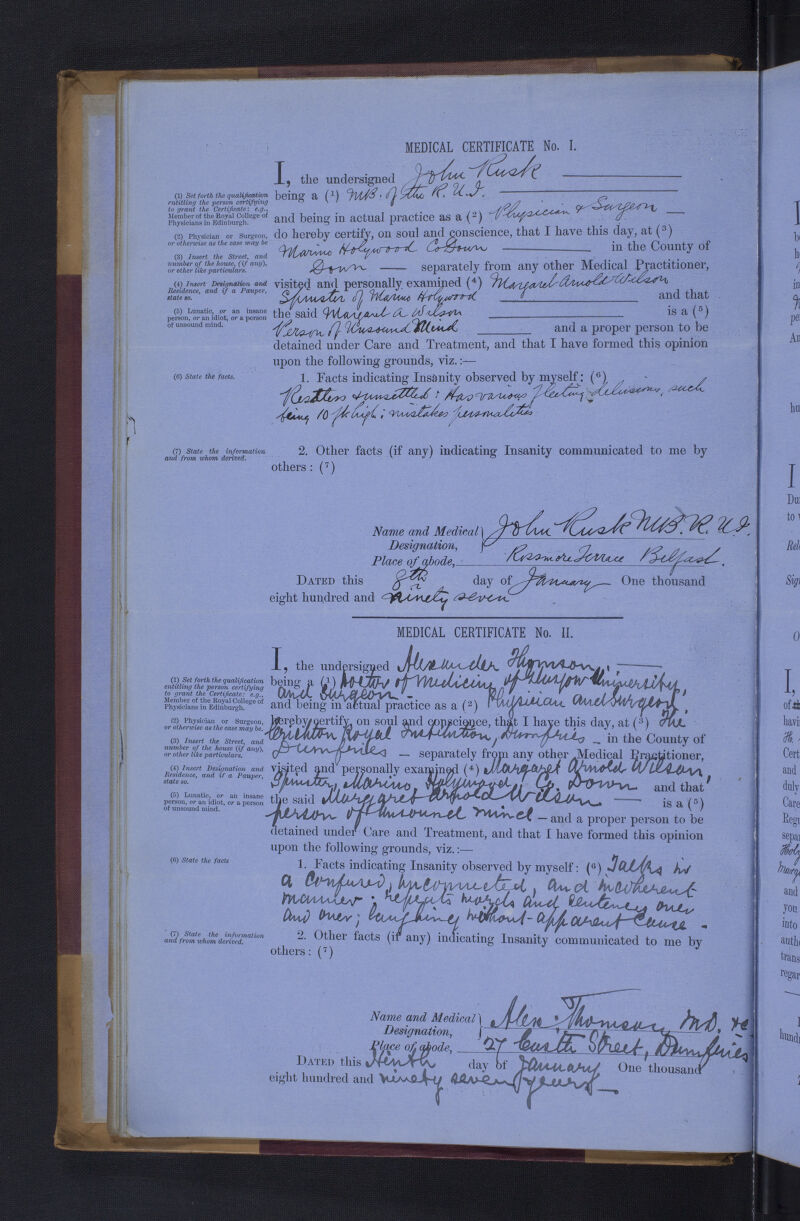 MEDICAL CERTIFICATE No. I.
I, the undersigned John Rusk
(1) Set forth the qualification entitling the person certifying to grant the Certificate: e.g., Member of the Royal College of Physicians in Edinburgh.
being a (1) MB. of the R.U.I.
and being in actual practice as a (2) Physician & Surgeon
(2) Physician or Surgeon, or otherwise as the case may be
do hereby certify, on soul and conscience, that I have this day, at (3)
(3) Insert the Street, and number of the house, (if any), or other like particulars.
Marino Holywood Co Down in the County of
Down separately from any other Medical Practitioner,
(4) Insert Designation and Residence, and if a Pauper, state so.
visited and personally examined (4) Margaret Arnold Wilson
Spinster of Marino Holywood and that
(5) Lunatic, or an insane person, or an idiot, or a person of unsound mind.
the said Margaret A Wilson is a (5)
Person of Unsound Mind and a proper person to be
detained under Care and Treatment, and that I have formed this opinion
upon the following grounds, viz.:—
(6) State the facts.
1. Facts indicating Insanity observed by myself: (6)
Restless & unsettled: Has various fleeting delusions, such
being 10 ft high; mistakes personalities
(7) State the information and from whom derived.
2. Other facts (if any) indicating Insanity communicated to me by
others: (7)
Name and Medical Designation, John Rusk MB. R.U.I.
Place of abode, Rossmore Terrace Belfast.
DATED this 8th day of January One thousand
eight hundred and ninety seven
MEDICAL CERTIFICATE No. II.
I, the undersigned Alexander Thomson,
(1) Set forth the qualification entitling the person certifying to grant the Certificate: e.g., Member of the Royal College of Physicians in Edinburgh.
being a (1) Doctor of Medicine of Glasgow University,
and Surgeon
and being in actual practice as a (2) Physician and Surgeon,
(2) Physician or Surgeon, or otherwise as the case may be.
hereby certify, on soul and conscience, that I have this day, at (3) The
(3) Insert the Street, and number of the house (if any), or other like particulars.
Crichton Royal Institution, Dumfries in the County of
Dumfries separately from any other Medical Practitioner,
(4) Insert Designation and Residence, and if a Pauper, state so.
visited and personally examined (4) Margaret Arnold Wilson,
Spinster, Marino, Holywood, Co. Down and that
(5) Lunatic, or an insane person, or an idiot, or a person of unsound mind.
the said Margaret Arnold Wilson is a (5)
person of unsound mind — and a proper person to be
detained under Care and Treatment, and that I have formed this opinion
upon the following grounds, viz.:—
(6) State the facts
1. Facts indicating Insanity observed by myself: (6) Talks in
a confused, unconnected, and incoherent
manner: repeats words and sentences over
and over; laughing without apparent cause.
(7) State the information and from whom derived.
2. Other facts (if any) indicating Insanity communicated to me by
others: (7)
Name and Medical Designation, Alex: Thomson, M.D. &c
Place of abode, 27 Castle Street, Dumfries
DATED this Ninth day of January One thousand
eight hundred and ninety seven years